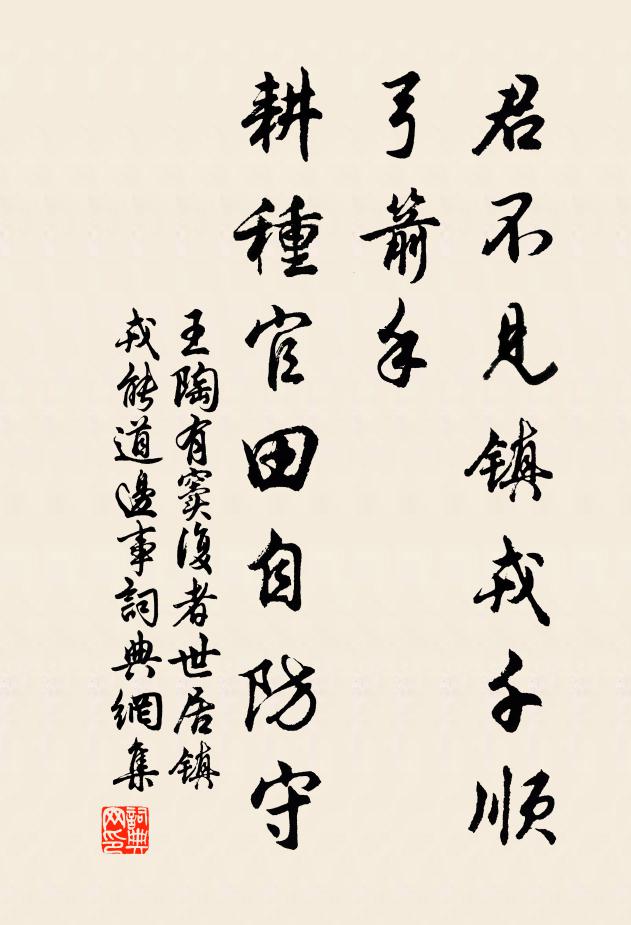 君不見鎮戎千順
弓箭手
耕種官田自防守
王陶有竇復者世居鎮
戎能道邊事詞典網集
詞典
网印